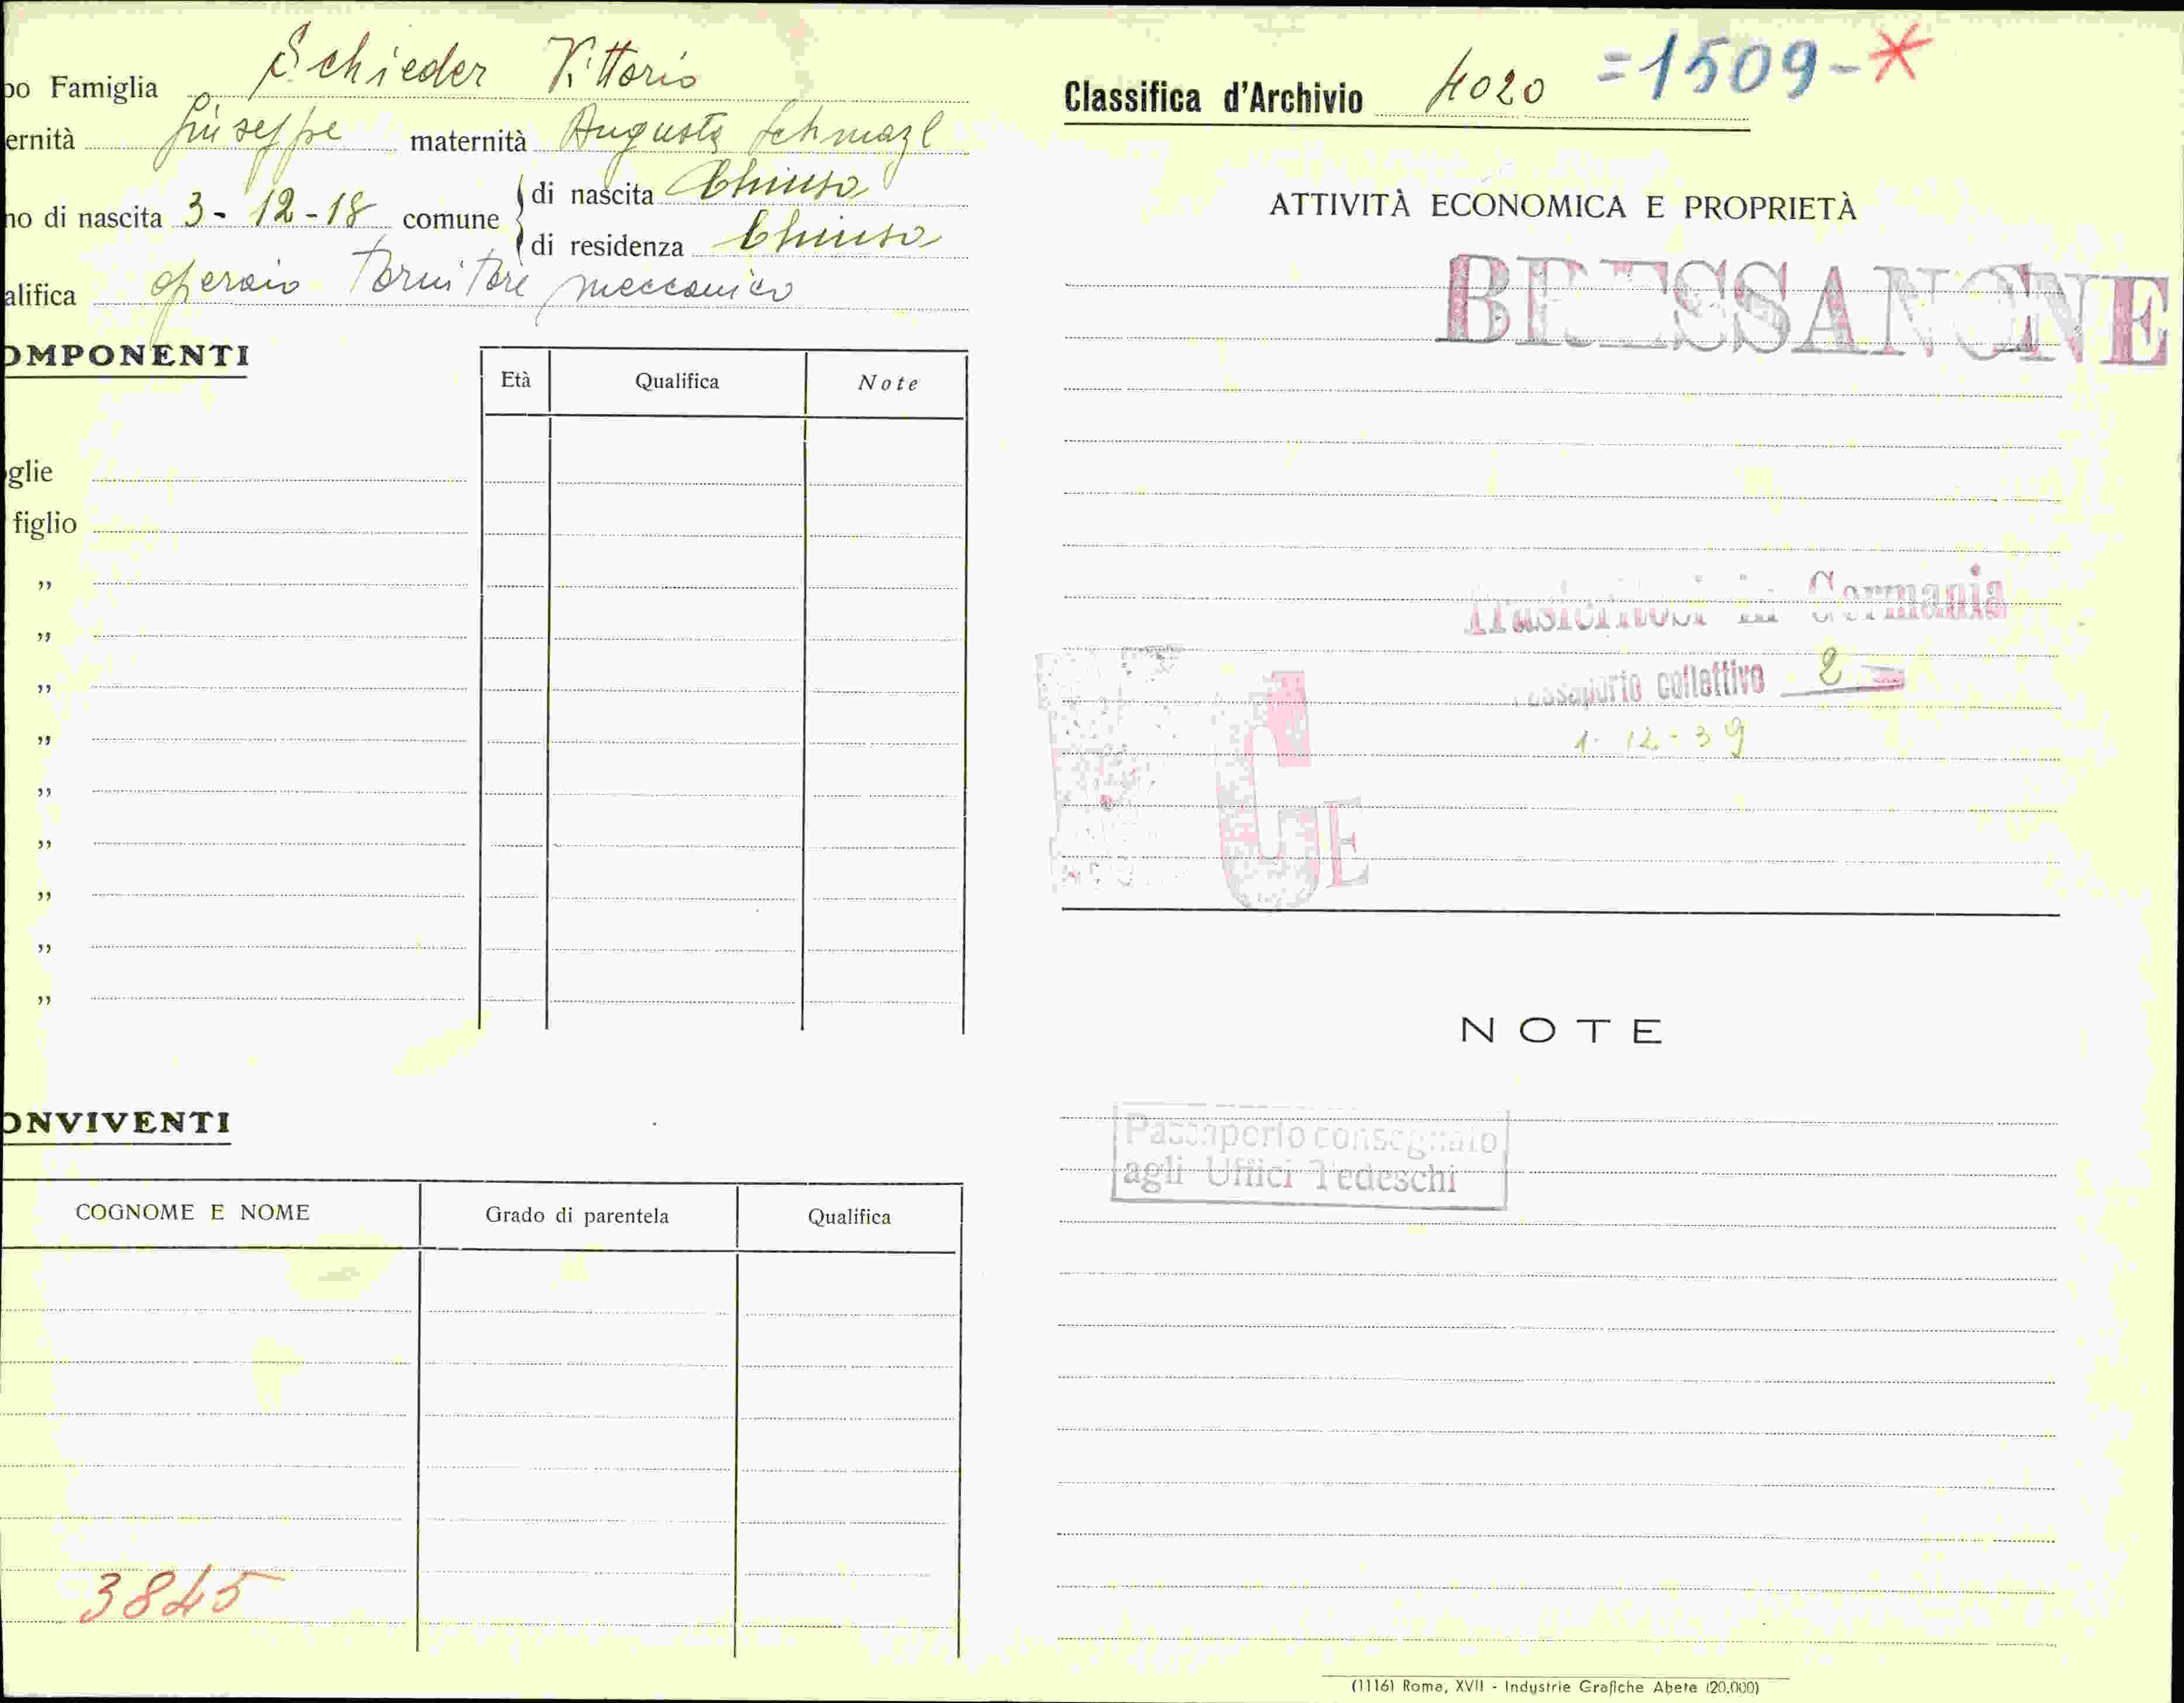 po Famiglia Schieder Vittorio
ernità Giuseppe maternità Augusta Schmazl
no di nascita 3-12-18 comune di nascita Chiusa
di residenza Chiusa
alifica operaio tornitore meccanico
OMPONENTI
Età Qualifica Note
glie
figlio
"
"
"
"
"
"
"
"
"
ONVIVENTI
COGNOME E NOME Grado di parentela Qualifica
3845
Classifica d'Archivio 4020 =1509-*
ATTIVITÀ ECONOMICA E PROPRIETÀ
BRESSANONE
Trasferitosi in Germania
Passaporto collettivo 2
1-12-39
GE
NOTE
Passaporto consegnato
agli Uffici Tedeschi
(1116) Roma, XVII - Industrie Grafiche Abete (20.000)